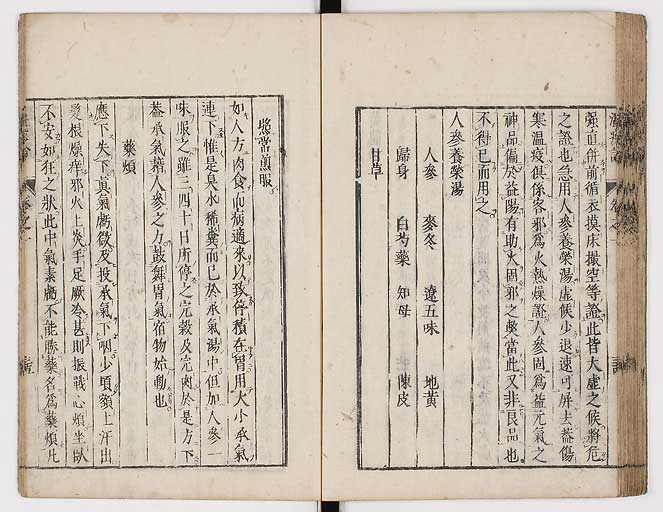 強直併前循衣摸床撮空等證此皆大虛之候將危
之證也急用人參養榮湯虛候少退速可屏去葢傷
寒溫疫俱係客邪爲火熱燥證人參固爲益元氣之
神品偏於益陽有助火固邪之獘當此又非良品也
不得已而用之
人參養榮湯
人參 麥冬 遼五味 地黃
歸身 白芍藥 知母 陳皮
甘草
照常煎服
如人方肉食而病適來以致停積在胃用大小承氣
連下惟是臭水稀糞而已於承氣湯中但加人參一
味服之雖三四十日所停之完穀及完肉於是方下
葢承氣藉人參之力鼓舞胃氣宿物始動也
藥煩
應下失下眞氣虧微及投承氣下咽少頃額上汗出
髮根燥痒邪火上炎手足厥冷甚則振戰心煩坐臥
不安如狂之狀此中氣素虧不能勝藥名爲藥煩凡